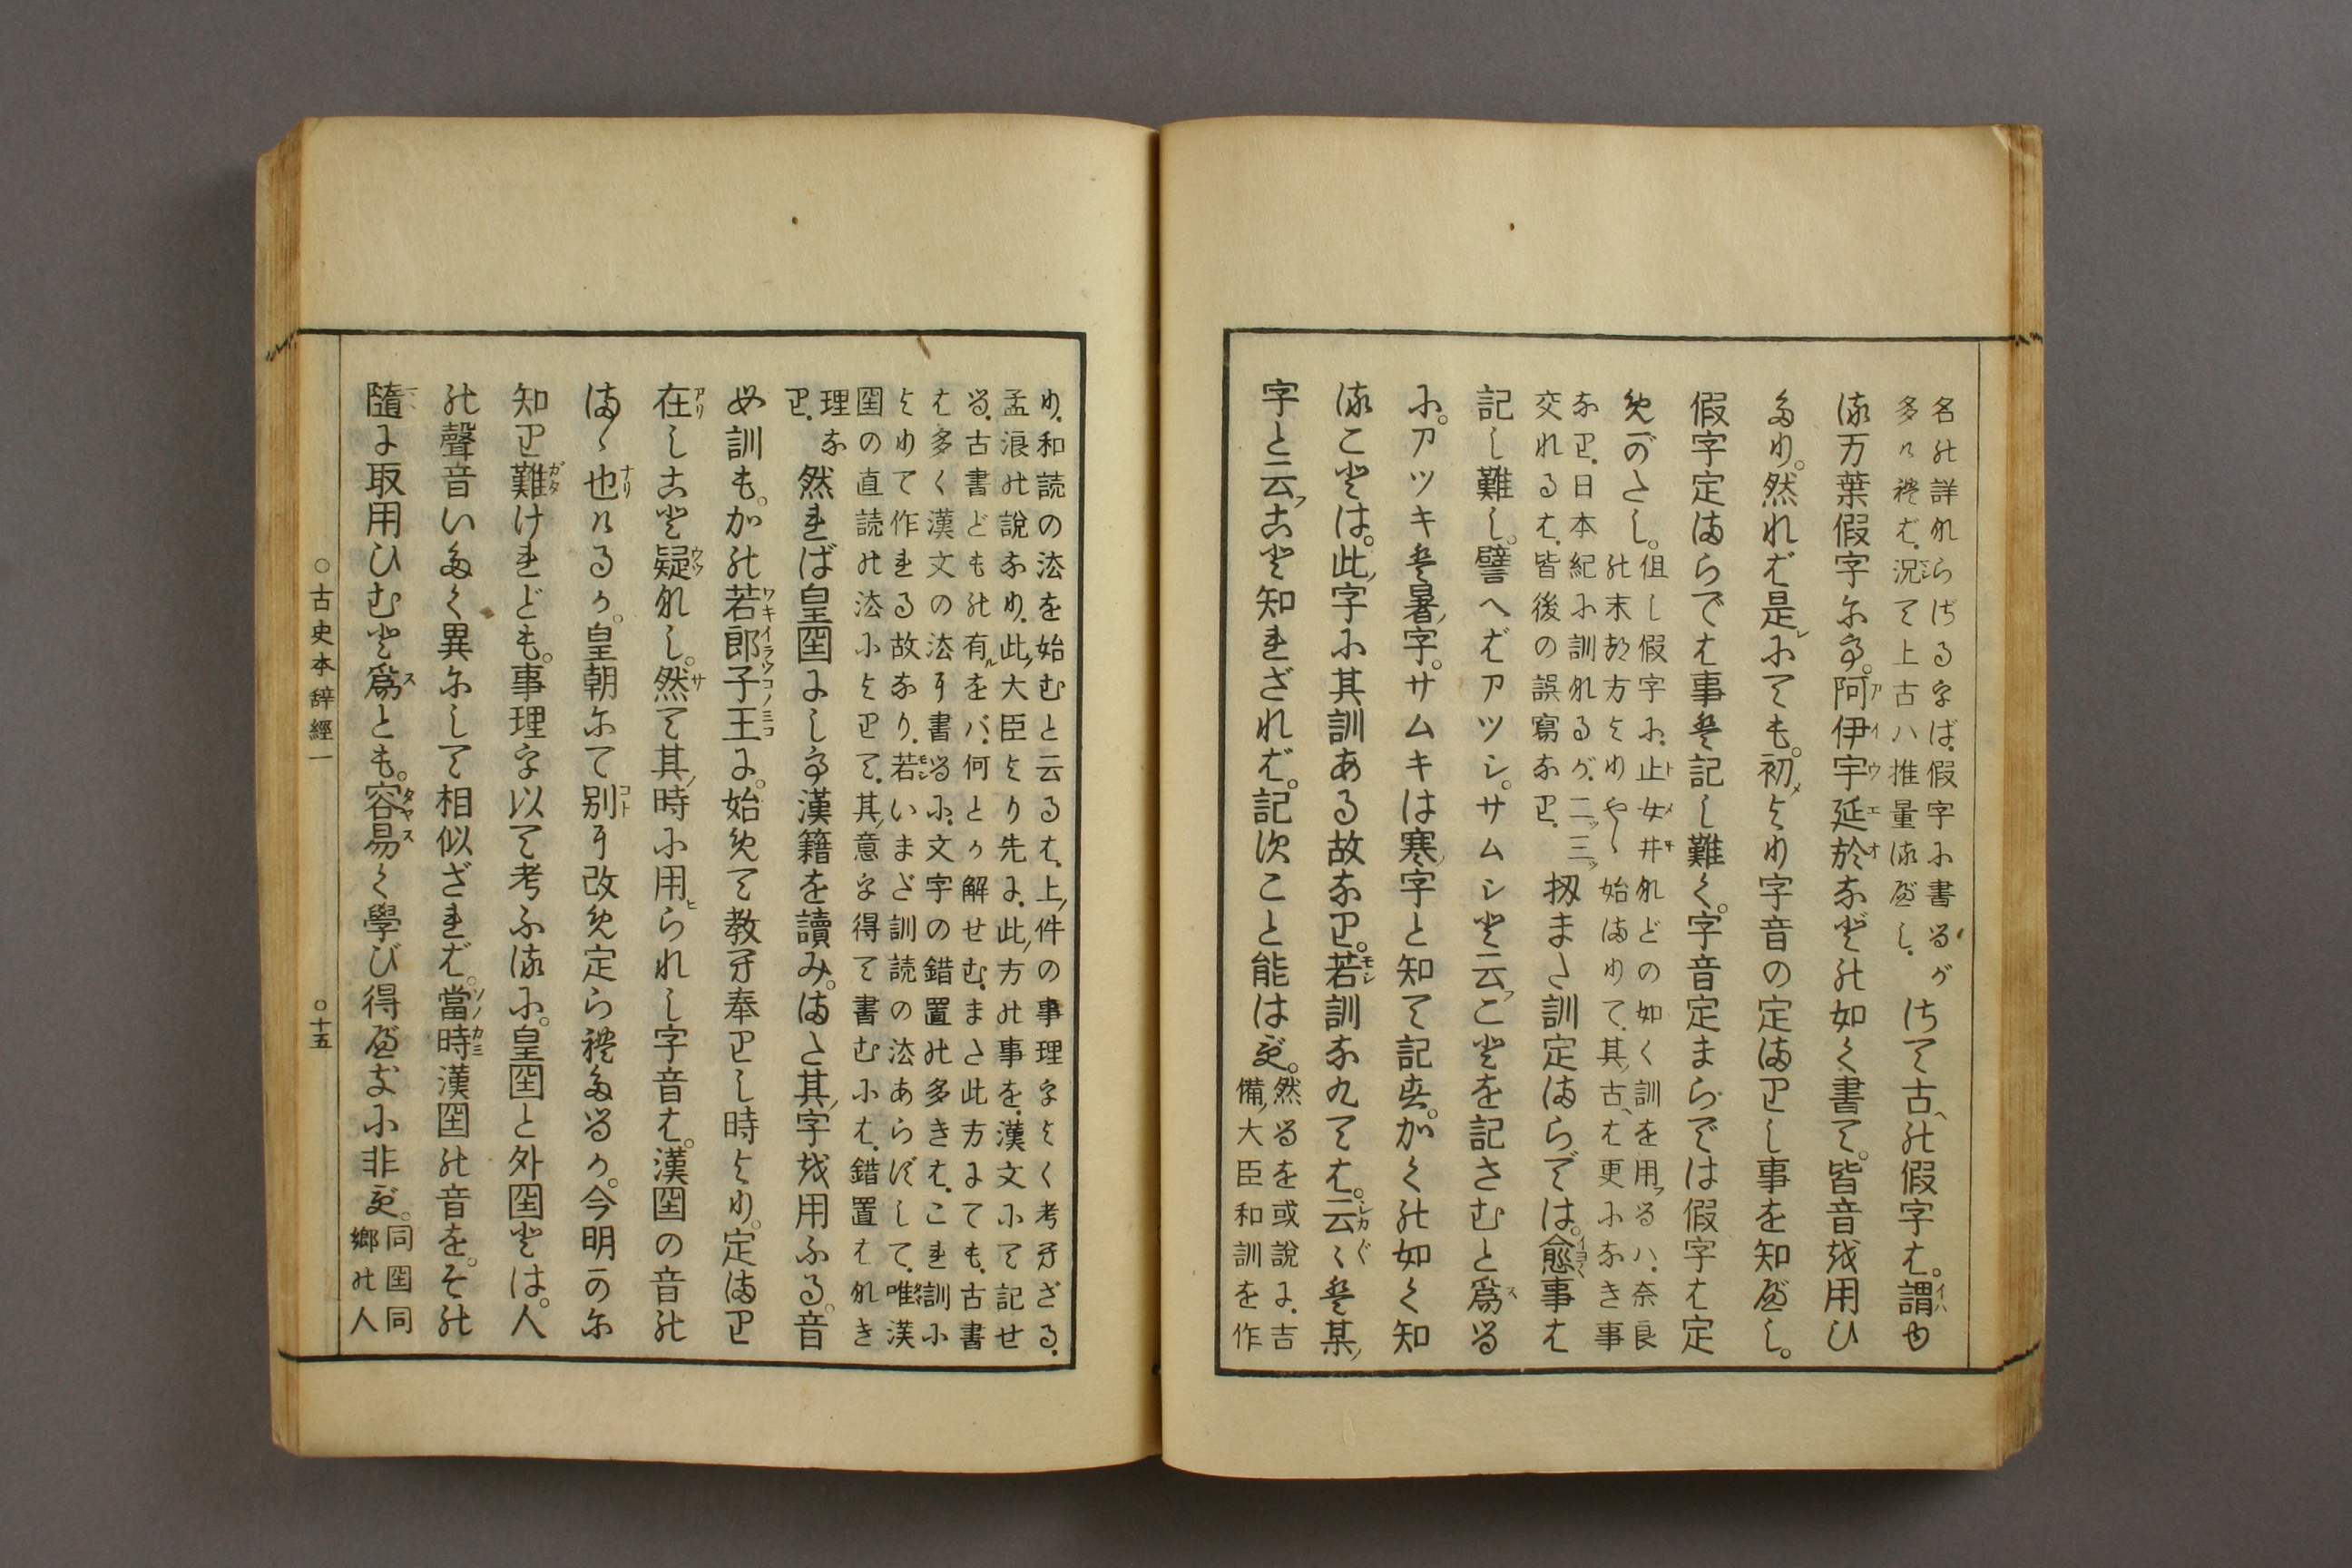 名の詳ならざる字は、假字に書るが
多ければ、况て上古ハ推量るべし、
さて古への假字は。謂ゆ
る万葉假字にて。阿伊宇延於などの如く書て。皆音を用ひ
たり。然れば是にても。初より字音の定まりし事を知べし。
假字定まらでは事を記し難く。字音定まらでは假字は定
めがたし。
但し假字に、止女井などの如く訓を用るハ、奈良
の末つ方よりやゝ始まりて、其古は更になき事
なり、日本紀に訓なるが、二三
交れるは、皆後の誤寫なり、
扨また訓定まらでは。愈事は
記し難し。譬へばアツシ。サムシと云ことを記さむと爲る
に。アツキを暑字。サムキは寒字と知て記す。かくの如く知
ることは。此字に其訓ある故なり。若訓なくては。云々を某
字と云こと知れざれば。記すこと能はず。
然るを或說に、吉
備大臣和訓を作
り、和読の法を始むと云るは、上件の事理をよく考へざる、
孟浪の說なり、此大臣より先に、此方の事を、漢文にて記せ
る、古書どもの有をバ、何とか解せむ、また此方にても、古書
は多く漢文の法に書るに、文字の錯置の多きは、これ訓に
よりて作れる故なり、若いまだ訓読の法あらずして、唯漢
囯の直読の法によりて、其意を得て書むには、錯置はなき
理な
り、
然れば皇囯にして漢籍を讀み。また其字を用ふる。音
も訓も。かの若郎子王に。始めて教へ奉りし時より。定まり
在しこと疑なし。然て其時に用られし字音は。漢囯の音の
まゝ也けるか。皇朝にて別に改め定られたるか。今明かに
知り難けれども。事理を以て考ふるに。皇囯と外囯とは。人
の聲音いたく異にして相似ざれば。當時漢囯の音を。その
隨に取用ひむと爲とも。容易く學び得べきに非ず。
同囯同
郷の人
○古史本辞經一　○十五